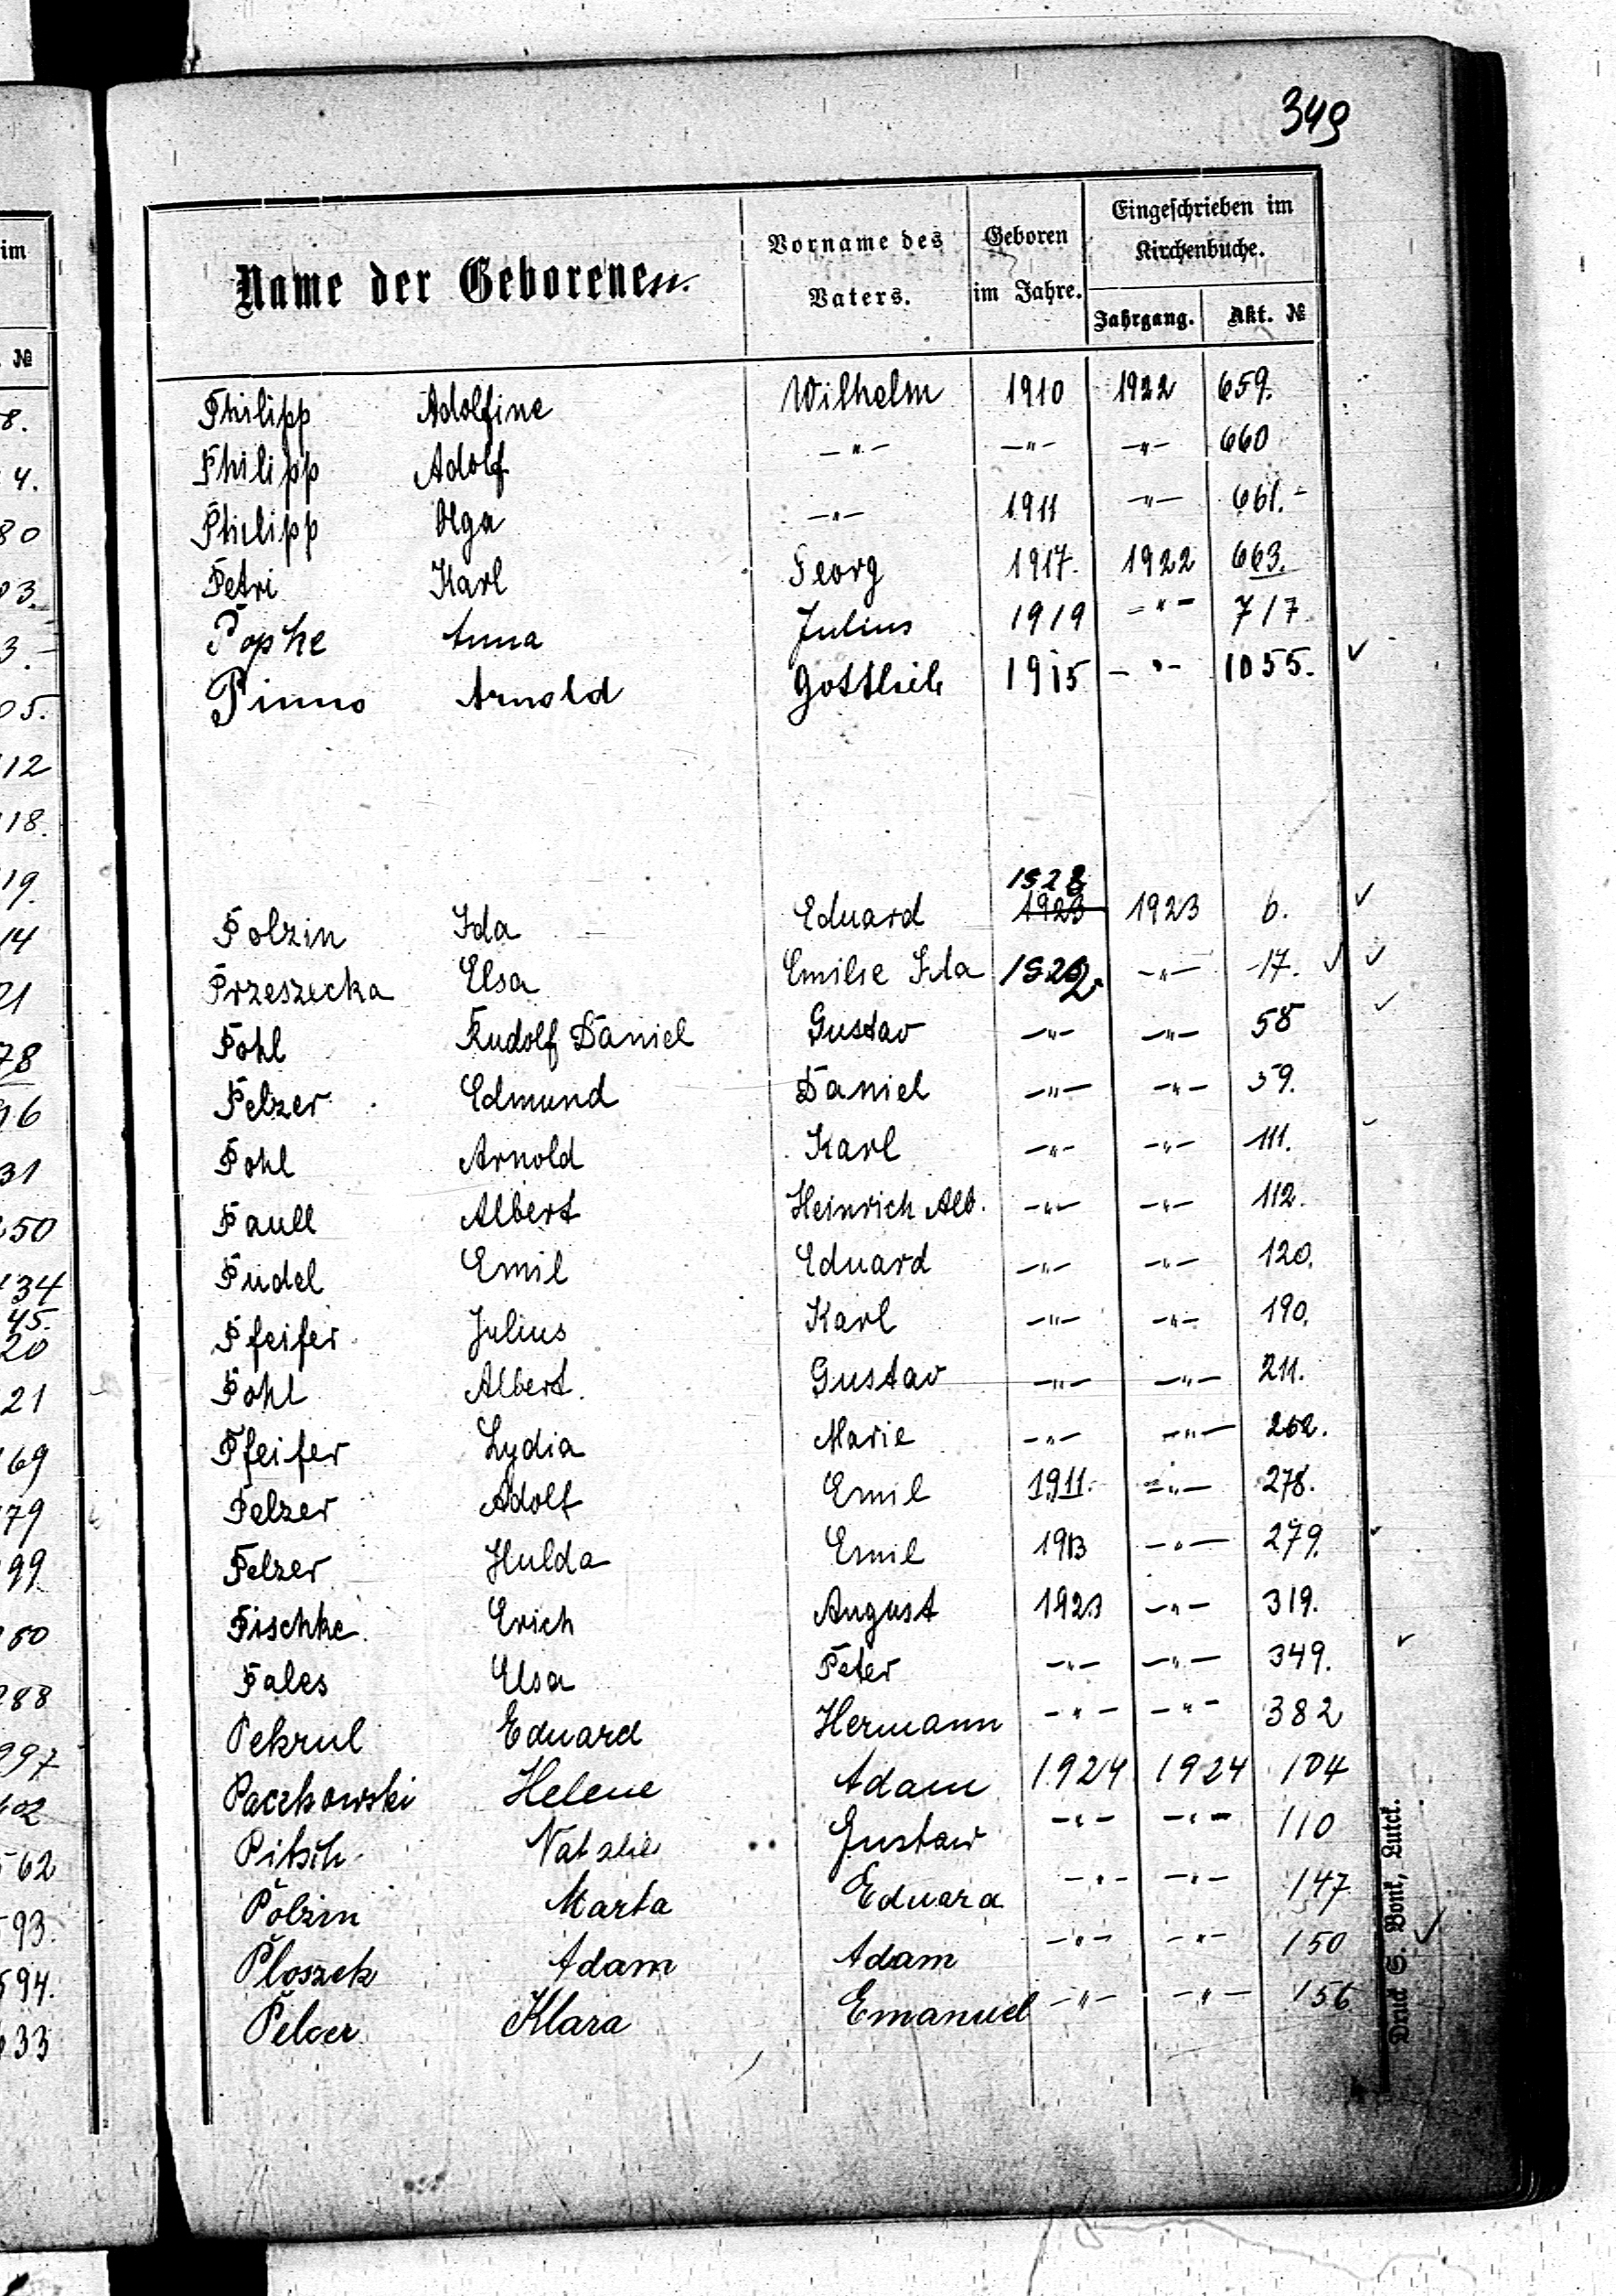 349
Name der Geborenen.
Vorname des Vaters.
Geboren im Jahre.
Eingeschrieben im Kirchenbuche.
Jahrgang. Akt. №
Philipp Adolfine Wilhelm 1910 1922 659.
Philipp Adolf —"— —"— —"— 660
Philipp Olga —"— 1911 —"— 661.-
Petri Karl Georg 1917. 1922 663.
Pophe Anna Julius 1919 —"— 717.
Pinno Arnold Gottlieb 1915 —"— 1055. ✓
1922
Polzin Ida Eduard 1923 1923 6. ✓
Przeszecka Elsa Emilie Ida 1922 —"— 17. ✓ ✓
Pohl Rudolf Daniel Gustav —"— —"— 58 ✓
Pelzer Edmund Daniel —"— —"— 59.
Pohl Arnold Karl —"— —"— 111.
Paull Albert Heinrich Alb. —"— —"— 112.
Pudel Emil Eduard —"— —"— 120.
Pfeifer Julius Karl —"— —"— 190.
Pohl Albert. Gustav —"— —"— 211.
Pfeifer Lydia Marie —"— —"— 262.
Pelzer Adolf Emil 1911. —"— 278.
Pelzer Hulda Emil 1913 —"— 279.
Pischke Erich August 1923 —"— 319.
Pales Elsa Peter —"— —"— 349. ✓
Pekrul Eduard Hermann —"— —"— 382
Paczkowski Helene Adam 1924 1924 104
Pitsch Natalie Gustaw —"— —"— 110
Polzin Marta Eduard —"— —"— 147
Ploszek Adam Adam —"— —"— 150 ✓
Pelcer Klara Emanuel —"— —"— 156
Druck S. Bonk, Lutck.
im
. №
8.
4.
80
03.
3.-
05.
112
118.
19.
14
21
78
96
31
250
134
45.
20
21
169
179
99
180
288
997
102
562
593.
594.
633